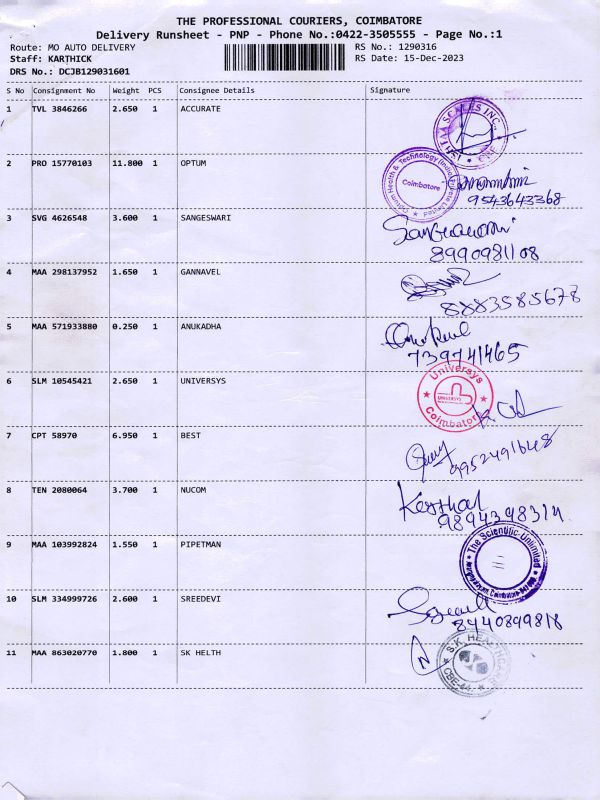 THE PROFESSIONAL COURIERS, COIMBATORE
Delivery Runsheet - PNP - Phone No.:0422-3505555 - Page No.:1
Route: MO AUTO DELIVERY RS No.: 1290316
Staff: KARTHICK RS Date: 15-Dec-2023
DRS No.: DCJB129031601
S No Consignment No Weight PCS Consignee Details Signature
1 TVL 3846266 2.650 1 ACCURATE
SCALES INC.
2 PRO 15770103 11.800 1 OPTUM
Optum Health & Technology (India) Private Limited
Coimbatore
9543643368
3 SVG 4626548 3.600 1 SANGESWARI
8990981108
4 MAA 298137952 1.650 1 GANNAVEL
8883585678
5 MAA 571933880 0.250 1 ANUKADHA
739741465
6 SLM 10545421 2.650 1 UNIVERSYS
Universys
UNIVERSYS
Coimbatore
7 CPT 58970 6.950 1 BEST
9952491648
8 TEN 2080064 3.700 1 NUCOM
9 MAA 103992824 1.550 1 PIPETMAN
The Scientific Unlimited
10 SLM 334999726 2.600 1 SREEDEVI
8440899818
11 MAA 863020770 1.800 1 SK HELTH
S.K. HEALTHCARE
CBE-44.